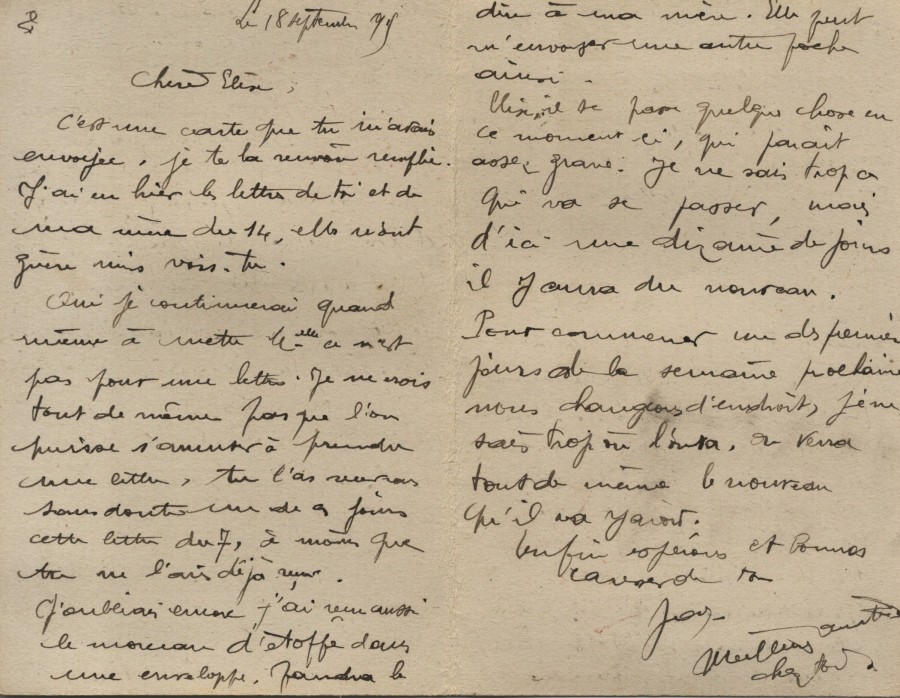 Le 18 septembre 1915
Chère Elise,
C'est une carte que tu m'avais
envoyée, je te la renvoie remplie.
J'ai eu hier les lettres de toi et de
ma mère du 14, elles n'ont
guère mis vois-tu.
Oui je continuerai quand
même à mettre ce n'est
pas pour une lettre. Je ne crois
tout de même pas que l'on
puisse s'amuser à prendre
une lettre, tu l'as
sans doute un de ces jours
cette lettre du 7, à moins que
tu ne l'ais déjà reçue.
J'oubliais encore j'ai reçu aussi
le morceau d'étoffe dans
une enveloppe. Faudra le
dire à ma mère. Elle peut
m'envoyer une autre poche
ainsi.
il se passe quelque chose en
ce moment ci, qui paraît
assez grave. Je ne sais trop ce
qui va se passer, mais
d'ici une dizaine de jours
il y aura du nouveau.
Pour commencer un des premiers
jours de la semaine prochaine
nous changeons d'endroit, je ne
sais trop où l'on va. on verra
tout de même le nouveau
qu'il va y avoir.
Enfin espérons et bonnes
de ton
Meilleurs amitiés
chez toi.